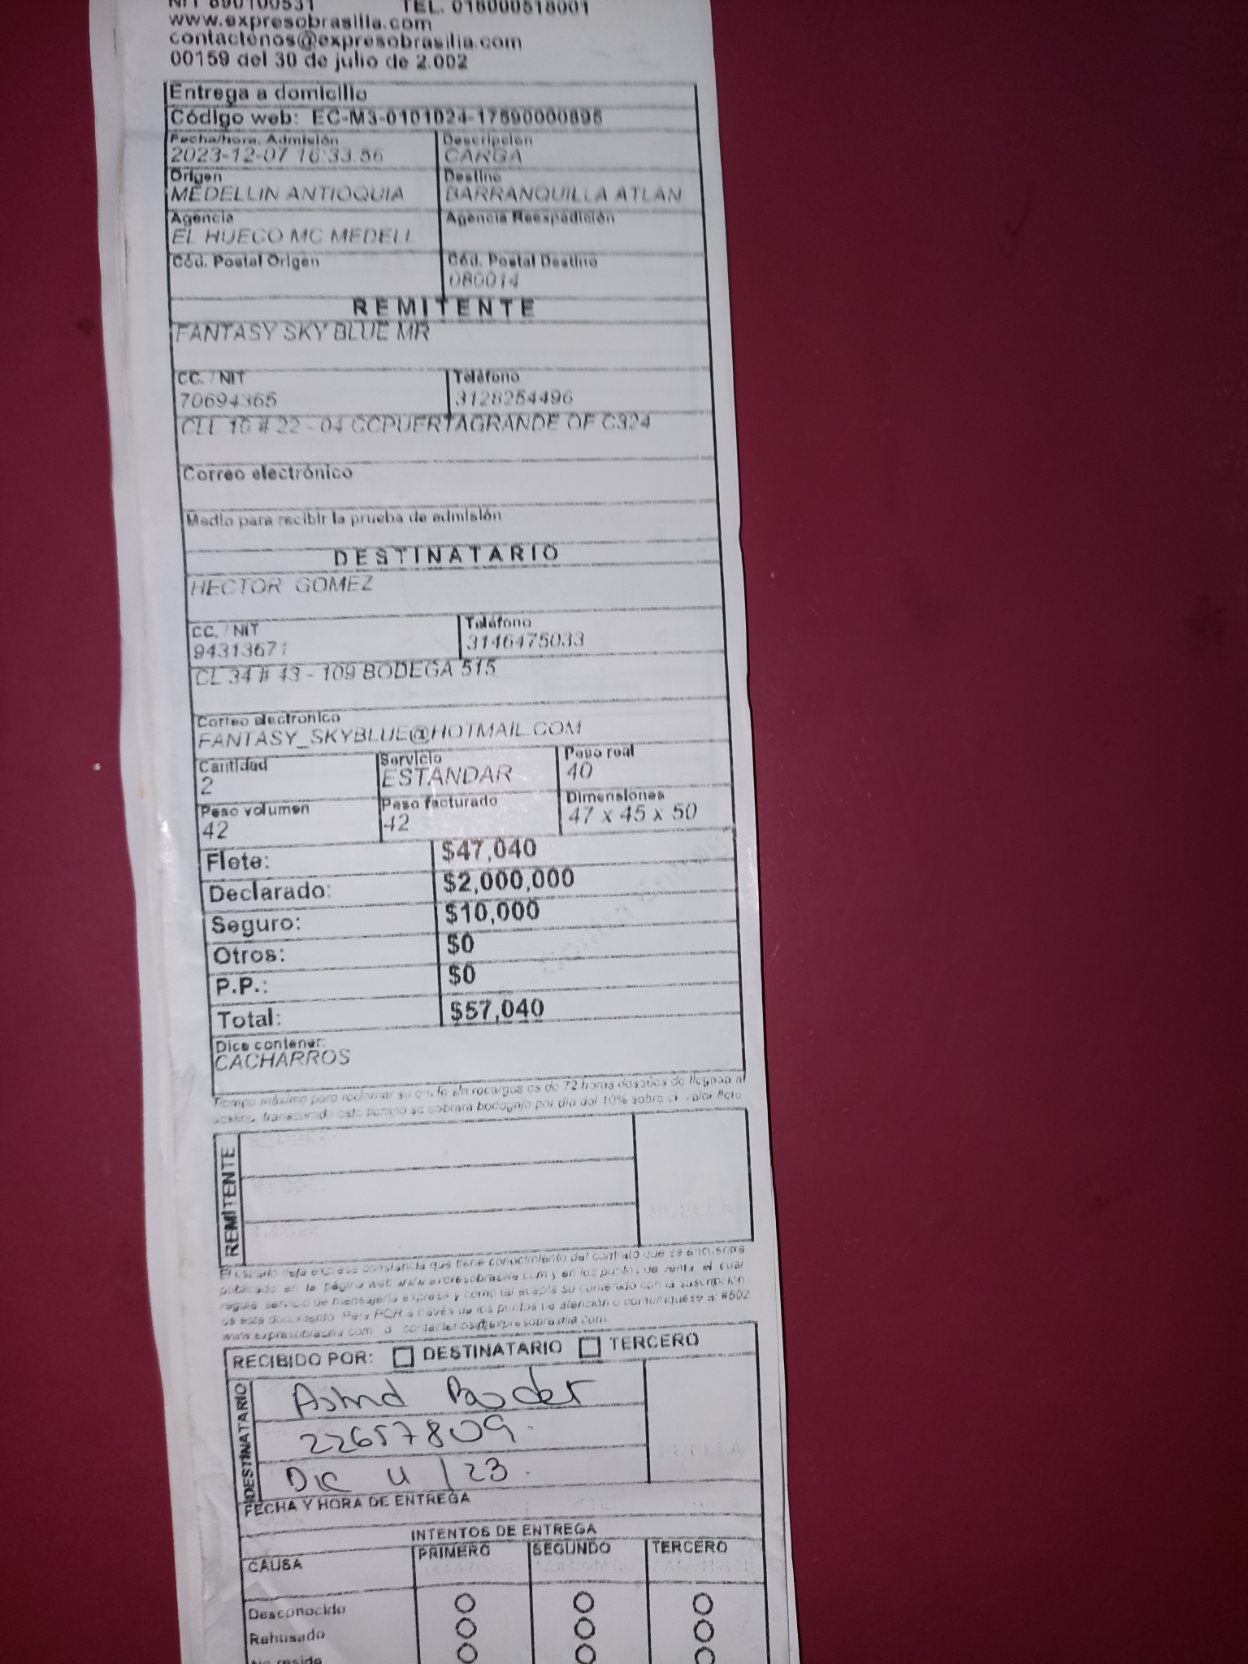 NIT 890100531 TEL. 018000518001
www.expresobrasilia.com
contactenos@expresobrasilia.com
00159 del 30 de julio de 2.002
Entrega a domicilio
Código web: EC-M3-0101024-17590000895
Fecha/hora. Admisión Descripción
2023-12-07 16:33:56 CARGA
Origen Destino
MEDELLIN ANTIOQUIA BARRANQUILLA ATLAN
Agencia Agencia Reexpedición
EL HUECO MC MEDELL
Cód. Postal Origen Cód. Postal Destino
080014
REMITENTE
FANTASY SKY BLUE MR
CC. / NIT Teléfono
70694365 3128254496
CLL 10 # 22 - 04 CCPUERTAGRANDE OF C324
Correo electrónico
Medio para recibir la prueba de admisión
DESTINATARIO
HECTOR GOMEZ
CC. / NIT Teléfono
94313671 3146475033
CL 34 # 43 - 109 BODEGA 515
Correo electronico
FANTASY_SKYBLUE@HOTMAIL.COM
Cantidad Servicio Peso real
2 ESTANDAR 40
Peso volumen Peso facturado Dimensiones
42 42 47 x 45 x 50
Flete: $47,040
Declarado: $2,000,000
Seguro: $10,000
Otros: $0
P.P.: $0
Total: $57,040
Dice contener:
CACHARROS
Tiempo máximo para reclamar su envío sin recargos es de 72 horas después de llegado al
destino, transcurrido este tiempo se cobrará bodegaje por día del 10% sobre el valor flete
REMITENTE
El usuario deja expresa constancia que tiene conocimiento del contrato que se encuentra
publicado en la página web www.expresobrasilia.com y en los puntos de venta, el cual
regula servicio de mensajería expresa y como tal acepta su contenido con la suscripción
de este documento. Para PQR a través de los puntos de atención o comuníquese al #502
www.expresobrasilia.com o contactenos@expresobrasilia.com
RECIBIDO POR: DESTINATARIO TERCERO
DESTINATARIO
22657809.
Dic 11 / 23.
FECHA Y HORA DE ENTREGA
INTENTOS DE ENTREGA
CAUSA PRIMERO SEGUNDO TERCERO
Desconocido
Rehusado
No reside